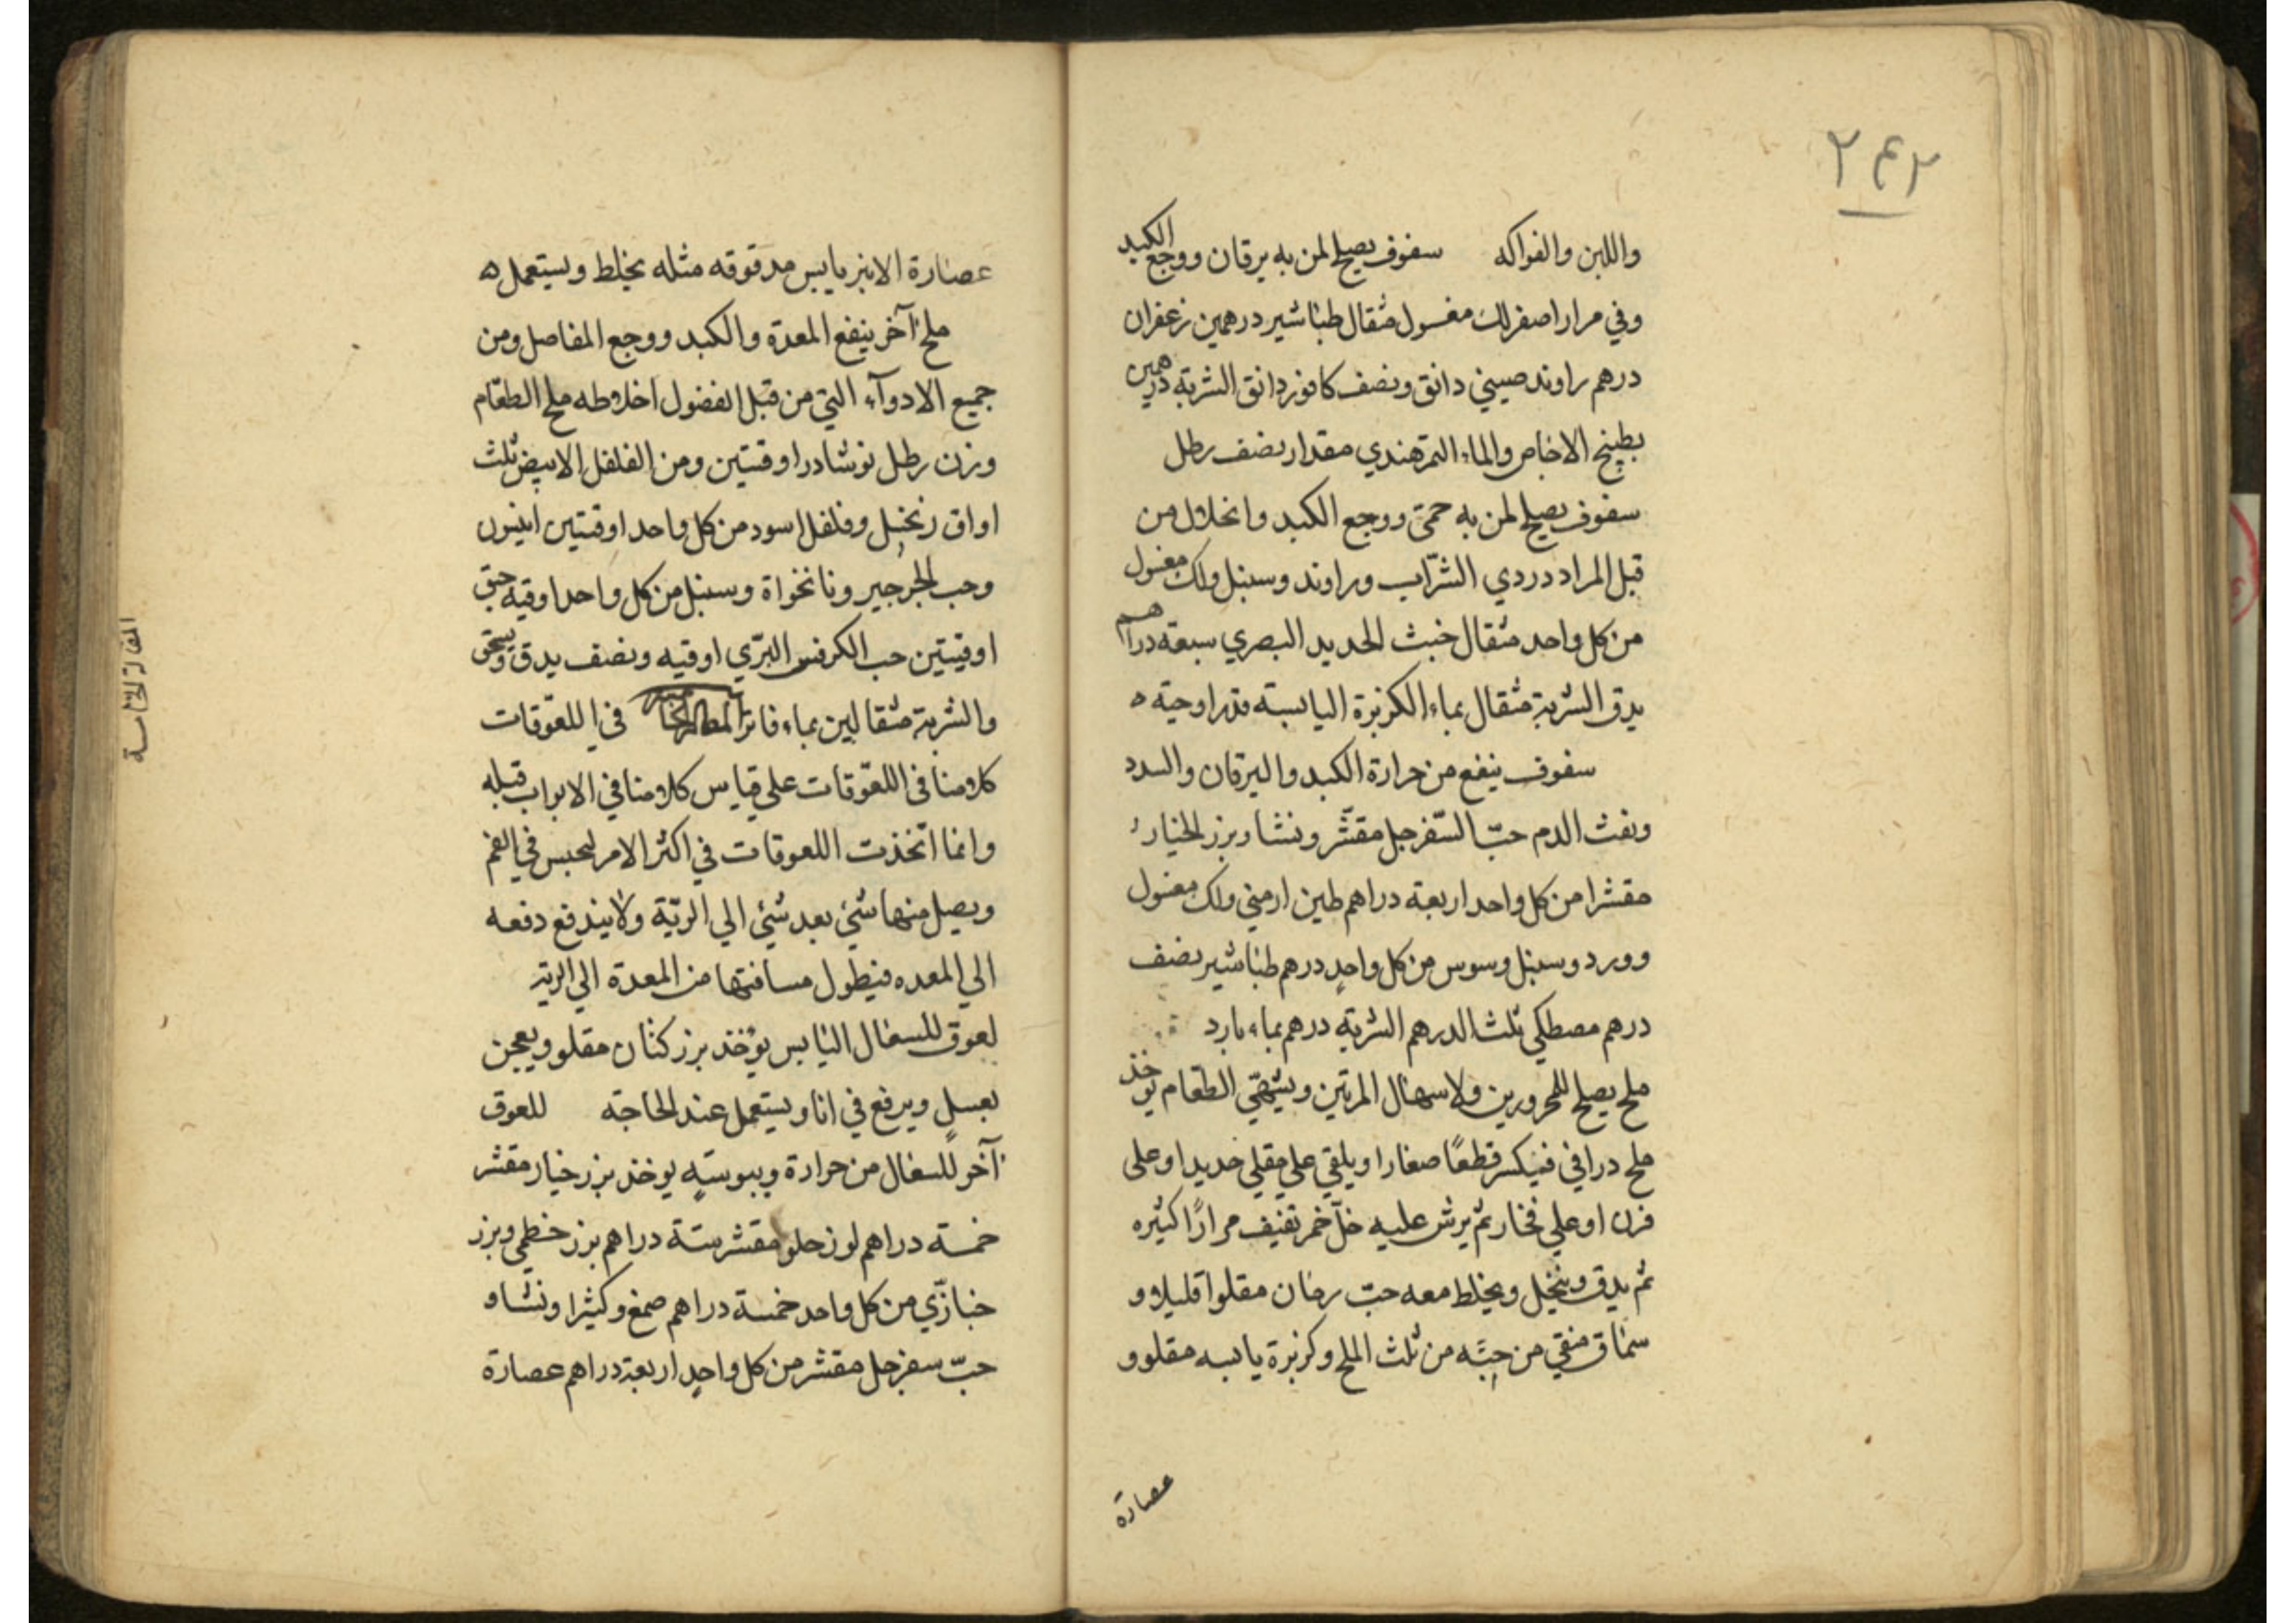 ٢٤٢
واللبن والفواكه سفوف يصلح لمن به يرقان ووجع الكبد
وفي مرار اصفر لك مغسول مثقال طباشير درهمين زعفران
درهم راوند صيني دانق ونصف كافور دانق الشربة درهمين
بطبيخ الاجاص والماء التمر هندي مقدار نصف رطل
سفوف يصلح لمن به حمي ووجع الكبد وانحلال من
قبل المراد دردي الشراب وراوند وسنبل ولك مغسول
من كل واحد مثقال خبث الحديد البصري سبعة دراهم
يدق الشربة مثقال بماء الكزبرة اليابسة قدر اوحية ه
سفوف ينفع من حرارة الكبد واليرقان والسدد
ونفث الدم حبّ السّفرجل مقشّر ونشا وبزر الخيار
مقشرا من كل واحد اربعة دراهم طين ارمني ولك مغسول
وورد وسنبل وسوس من كل واحدٍ درهم طباشير نصف
درهم مصطكي ثلث الدرهم الشربة درهم بماء بارد
ملح يصلح للمحرورين ولاسهال المرتين ويشهّي الطعام يوخذ
ملح دراني فيكسر قطعًا صغارا ويلقي علي مقلي حديد او على
فرن او علي فخار ثم يرش عليه خلّ خمر ثقيف مرارًا كثيره
ثم يدق وينخل ويخلط معه حبّ رمان مقلوا قليلا و
سماق منقي من حبّه من ثلث الملح وكزبرة يابسه مقلوو
عصارة
عصارة الانبرباريس مدقوقه مثله يخلط ويستعمل ه
ملح آخر ينفع المعدة والكبد ووجع المفاصل ومن
جميع الادوآء التي من قبل الفضول اخلاطه ملح الطعام
وزن رطل نوشادر اوقيتين ومن الفلفل الابيض ثلث
اواق زنجبيل وفلفل اسود من كل واحد اوقيتين انيسون
وحب الجرجير ونانخواة وسنبل من كل واحد اوقيه حبق
اوقيتين حب الكرفس البرّي اوقيه ونصف يدق ويسحق
والشربة مثقالين بماء فاتر في اللعوقات
كلامنا في اللعوقات علي قياس كلامنا في الابواب قبله
وانما اتّخذت اللعوقات في اكثر الامر لتحبس في الفم
ويصل منها شئ بعد شئ الي الريّة ولا يندفع دفعه
الي المعده فيطول مسافتها من المعدة الي الرية
لعوق للسعال اليابس يوخذ بزر كتان مقلو ويعجن
بعسل ويرفع في انا ويستعمل عند الحاجة للعوق
آخر للسعال من حرارة ويبوسة يوخذ بزر خيار مقشر
خمسة دراهم لوز حلو مقشر ستة دراهم بزر خطمي وبزر
خبازّي من كل واحد خمسة دراهم صمغ وكثيرا ونشا و
حبّ سفرجل مقشر من كل واحدٍ اربعة دراهم عصارة
المقالة الخامسة